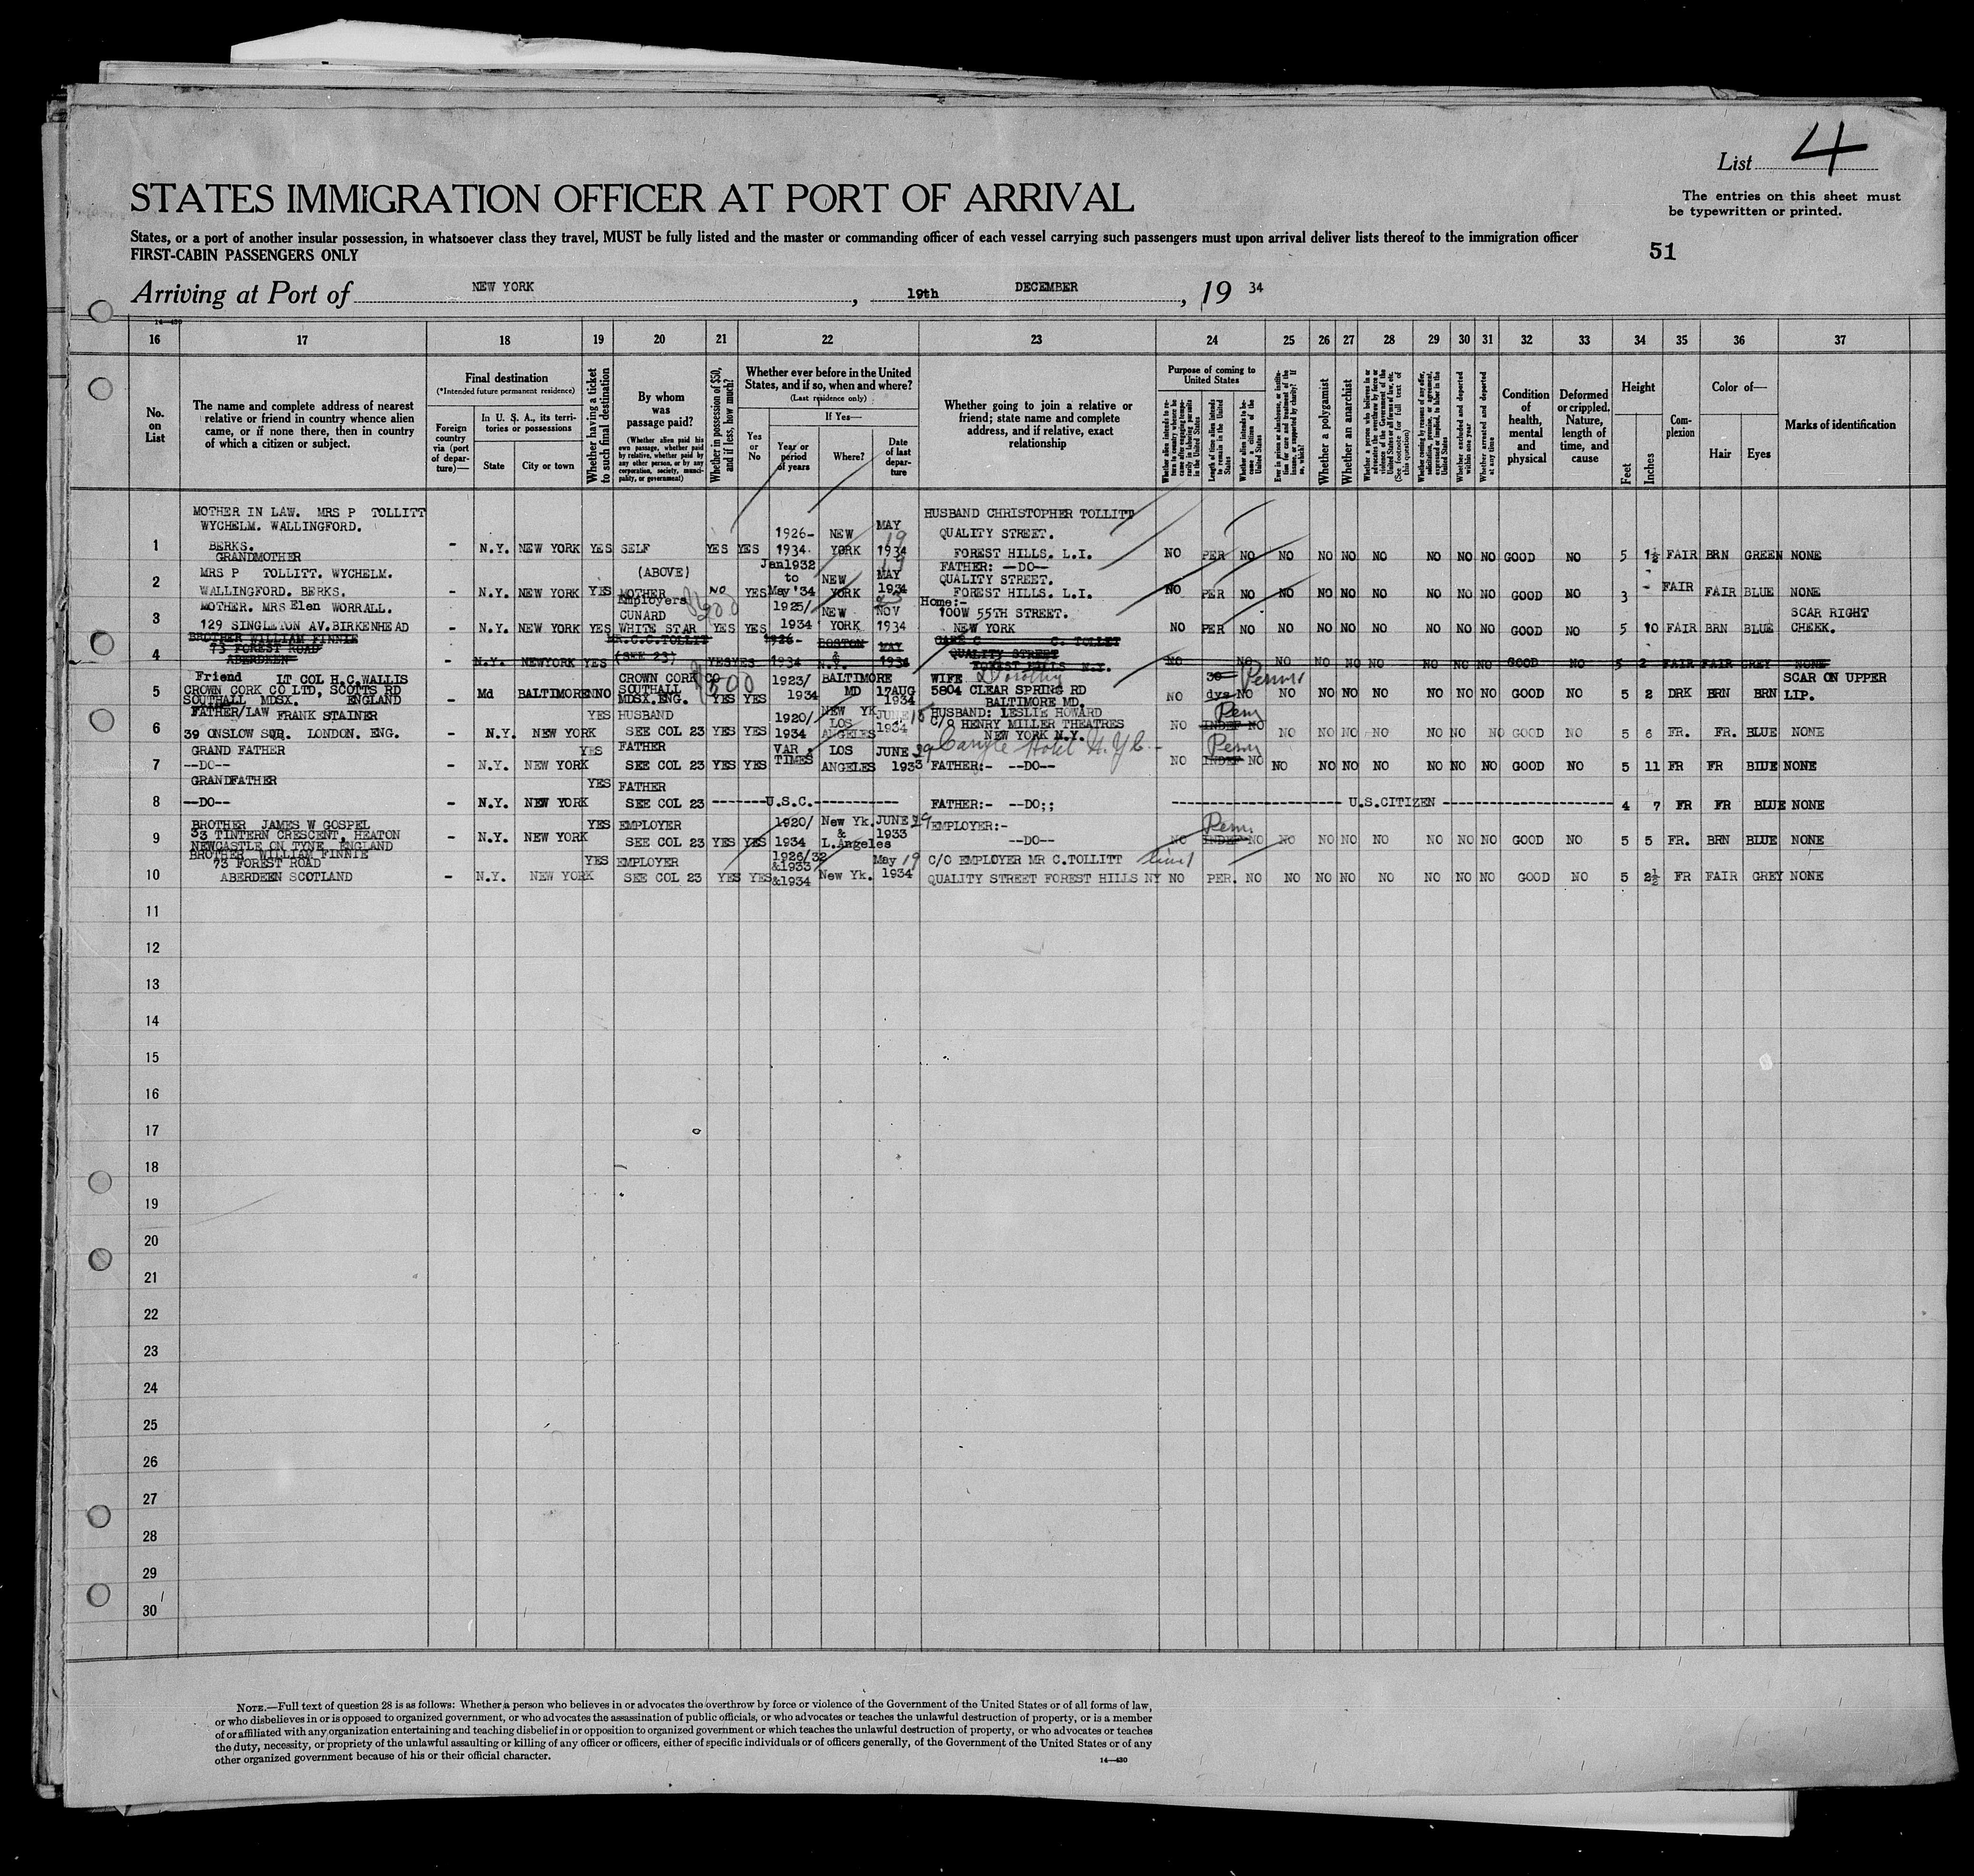 List 4
STATES IMMIGRATION OFFICER AT PORT OF ARRIVAL
The entries on this sheet must
be typewritten or printed.
States, or a port of another insular possession, in whatsoever class they travel, MUST be fully listed and the master or commanding officer of each vessel carrying such passengers must upon arrival deliver lists thereof to the immigration officer
FIRST-CABIN PASSENGERS ONLY
51
Arriving at Port of NEW YORK, 19th DECEMBER, 19 34
14—430
16 17 18 19 20 21 22 23 24 25 26 27 28 29 30 31 32 33 34 35 36 37
No.
on
List
The name and complete address of nearest
relative or friend in country whence alien
came, or if none there, then in country
of which a citizen or subject.
Final destination
(*Intended future permanent residence)
Foreign
country
via (port
of depar-
ture)—
In U. S. A., its terri-
tories or possessions
State
City or town
Whether having a ticket
to such final destination
By whom
was
passage paid?
(Whether alien paid his
own passage, whether paid
by relative, whether paid by
any other person, or by any
corporation, society, munici-
pality, or government)
Whether in possession of $50,
and if less, how much?
Whether ever before in the United
States, and if so, when and where?
(Last residence only)
Yes
or
No
If Yes—
Year or
period
of years
Where?
Date
of last
depar-
ture
Whether going to join a relative or
friend; state name and complete
address, and if relative, exact
relationship
Purpose of coming to
United States
Length of time alien intends
to remain in the United
States
Whether alien intends to be-
come a citizen of the
United States
Whether a polygamist
Whether an anarchist
Whether excluded and deported
within one year
Whether arrested and deported
at any time
Condition
of
health,
mental
and
physical
Deformed
or crippled.
Nature,
length of
time, and
cause
Height
Feet
Inches
Com-
plexion
Color of—
Hair
Eyes
Marks of identification
MOTHER IN LAW. MRS P TOLLITT HUSBAND CHRISTOPHER TOLLITT
WYCHELM. WALLINGFORD. 1926- NEW MAY 19 QUALITY STREET.
1 BERKS. - N.Y. NEW YORK YES SELF YES YES 1934. YORK 1934 FOREST HILLS. L.I. NO PER NO NO NO NO NO NO NO NO GOOD NO 5 1½ FAIR BRN GREEN NONE
GRANDMOTHER Jan1932 FATHER: —DO—
MRS P TOLLITT. WYCHELM. (ABOVE) to NEW MAY 19 QUALITY STREET.
2 WALLINGFORD. BERKS. - N.Y. NEW YORK YES MOTHER NO YES May '34 YORK 1934 FOREST HILLS. L.I. NO PER NO NO NO NO NO NO NO NO GOOD NO 3 - FAIR FAIR BLUE NONE
MOTHER. MRS Elen WORRALL. Employers CUNARD 1925/ NEW NOV Home:- 100W 55TH STREET. SCAR RIGHT
3 129 SINGLETON AV.BIRKENHEAD - N.Y. NEW YORK YES WHITE STAR YES YES 1934 YORK 1934 NEW YORK NO PER NO NO NO NO NO NO NO NO GOOD NO 5 10 FAIR BRN BLUE CHEEK.
BROTHER WILLIAM FINNIE MR.C.C.TOLLIT 1926- BOSTON MAY CARE C C. TOLLIT
73 FOREST ROAD (SEE 23) & QUALITY STREET
4 ABERDEEN - N.Y. NEWYORK YES YES YES 1934 N.Y. 1934 FOREST HILLS N.Y. NO NO NO NO NO NO NO NO NO GOOD NO 5 2 FAIR FAIR GREY NONE
Friend LT COL H.C.WALLIS CROWN CORK CO $500 1923/ BALTIMORE WIFE Dorothy 30 Perm SCAR ON UPPER
5 CROWN CORK CO LTD, SCOTTS RD Md BALTIMORE NNO SOUTHALL 1934 MD 17AUG 5804 CLEAR SPRING RD NO dys NO NO NO NO NO NO NO NO GOOD NO 5 2 DRK BRN BRN LIP.
SOUTHALL MDSX. ENGLAND - MDSX.ENG. YES YES 1934 BALTIMORE MD.
FATHER/LAW FRANK STAINER YES HUSBAND 1920/ NEW YK. LOS JUNE 15 HUSBAND: LESLIE HOWARD Perm
6 39 ONSLOW SQR. LONDON. ENG. - N.Y. NEW YORK SEE COL 23 YES YES 1934 ANGELES 1934 C/O HENRY MILLER THEATRES NO INDEF NO NO NO NO NO NO NO NO GOOD NO 5 6 FR. FR. BLUE NONE
NEW YORK N.Y.
GRAND FATHER YES FATHER VAR. LOS JUNE 29 Carlyle Hotel N.Y.C. Perm
7 --DO-- - N.Y. NEW YORK SEE COL 23 YES YES TIMES ANGELES 1933 FATHER:- --DO-- NO INDEF NO NO NO NO NO NO NO NO GOOD NO 5 11 FR FR BLUE NONE
GRANDFATHER YES FATHER
8 --DO-- - N.Y. NEW YORK SEE COL 23 -------U.S.C.----------- FATHER:- --DO;; ---------- U.S.CITIZEN ---------- 4 7 FR FR BLUE NONE
BROTHER JAMES W GOSPEL YES EMPLOYER 1920/ New Yk. JUNE 29 EMPLOYER:- Perm.
9 33 TINTERN CRESCENT, HEATON - N.Y. NEW YORK SEE COL 23 YES YES 1934 & L.Angeles 1933 --DO-- NO INDEF NO NO NO NO NO NO NO NO GOOD NO 5 5 FR. BRN BLUE NONE
NEWCASTLE ON TYNE, ENGLAND
BROTHER WILLIAM FINNIE YES EMPLOYER 1926/32 May 19 C/O EMPLOYER MR C.TOLLITT
73 FOREST ROAD &1933
10 ABERDEEN SCOTLAND - N.Y. NEW YORK SEE COL 23 YES YES &1934 New Yk. 1934 QUALITY STREET FOREST HILLS NY NO PER. NO NO NO NO NO NO NO NO GOOD NO 5 2½ FR FAIR GREY NONE
11
12
13
14
15
16
17
18
19
20
21
22
23
24
25
26
27
28
29
30
NOTE.—Full text of question 28 is as follows: Whether a person who believes in or advocates the overthrow by force or violence of the Government of the United States or of all forms of law,
or who disbelieves in or is opposed to organized government, or who advocates the assassination of public officials, or who advocates or teaches the unlawful destruction of property, or is a member
of or affiliated with any organization entertaining and teaching disbelief in or opposition to organized government or which teaches the unlawful destruction of property, or who advocates or teaches
the duty, necessity, or propriety of the unlawful assaulting or killing of any officer or officers, either of specific individuals or of officers generally, of the Government of the United States or of any
other organized government because of his or their official character.
14—430